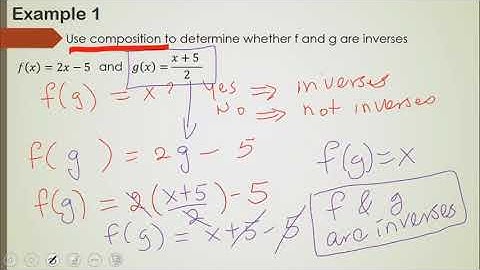 Example 1
Use composition to determine whether f and g are inverses
f(x) = 2x − 5 and g(x) = (x + 5)/2
f(g) = x? Yes ⇒ inverses
No ⇒ not inverses
f(g) = 2g − 5
f(g) = x
f(g) = 2(x+5/2) − 5
f & g
are inverses
f(g) = x+5 − 5